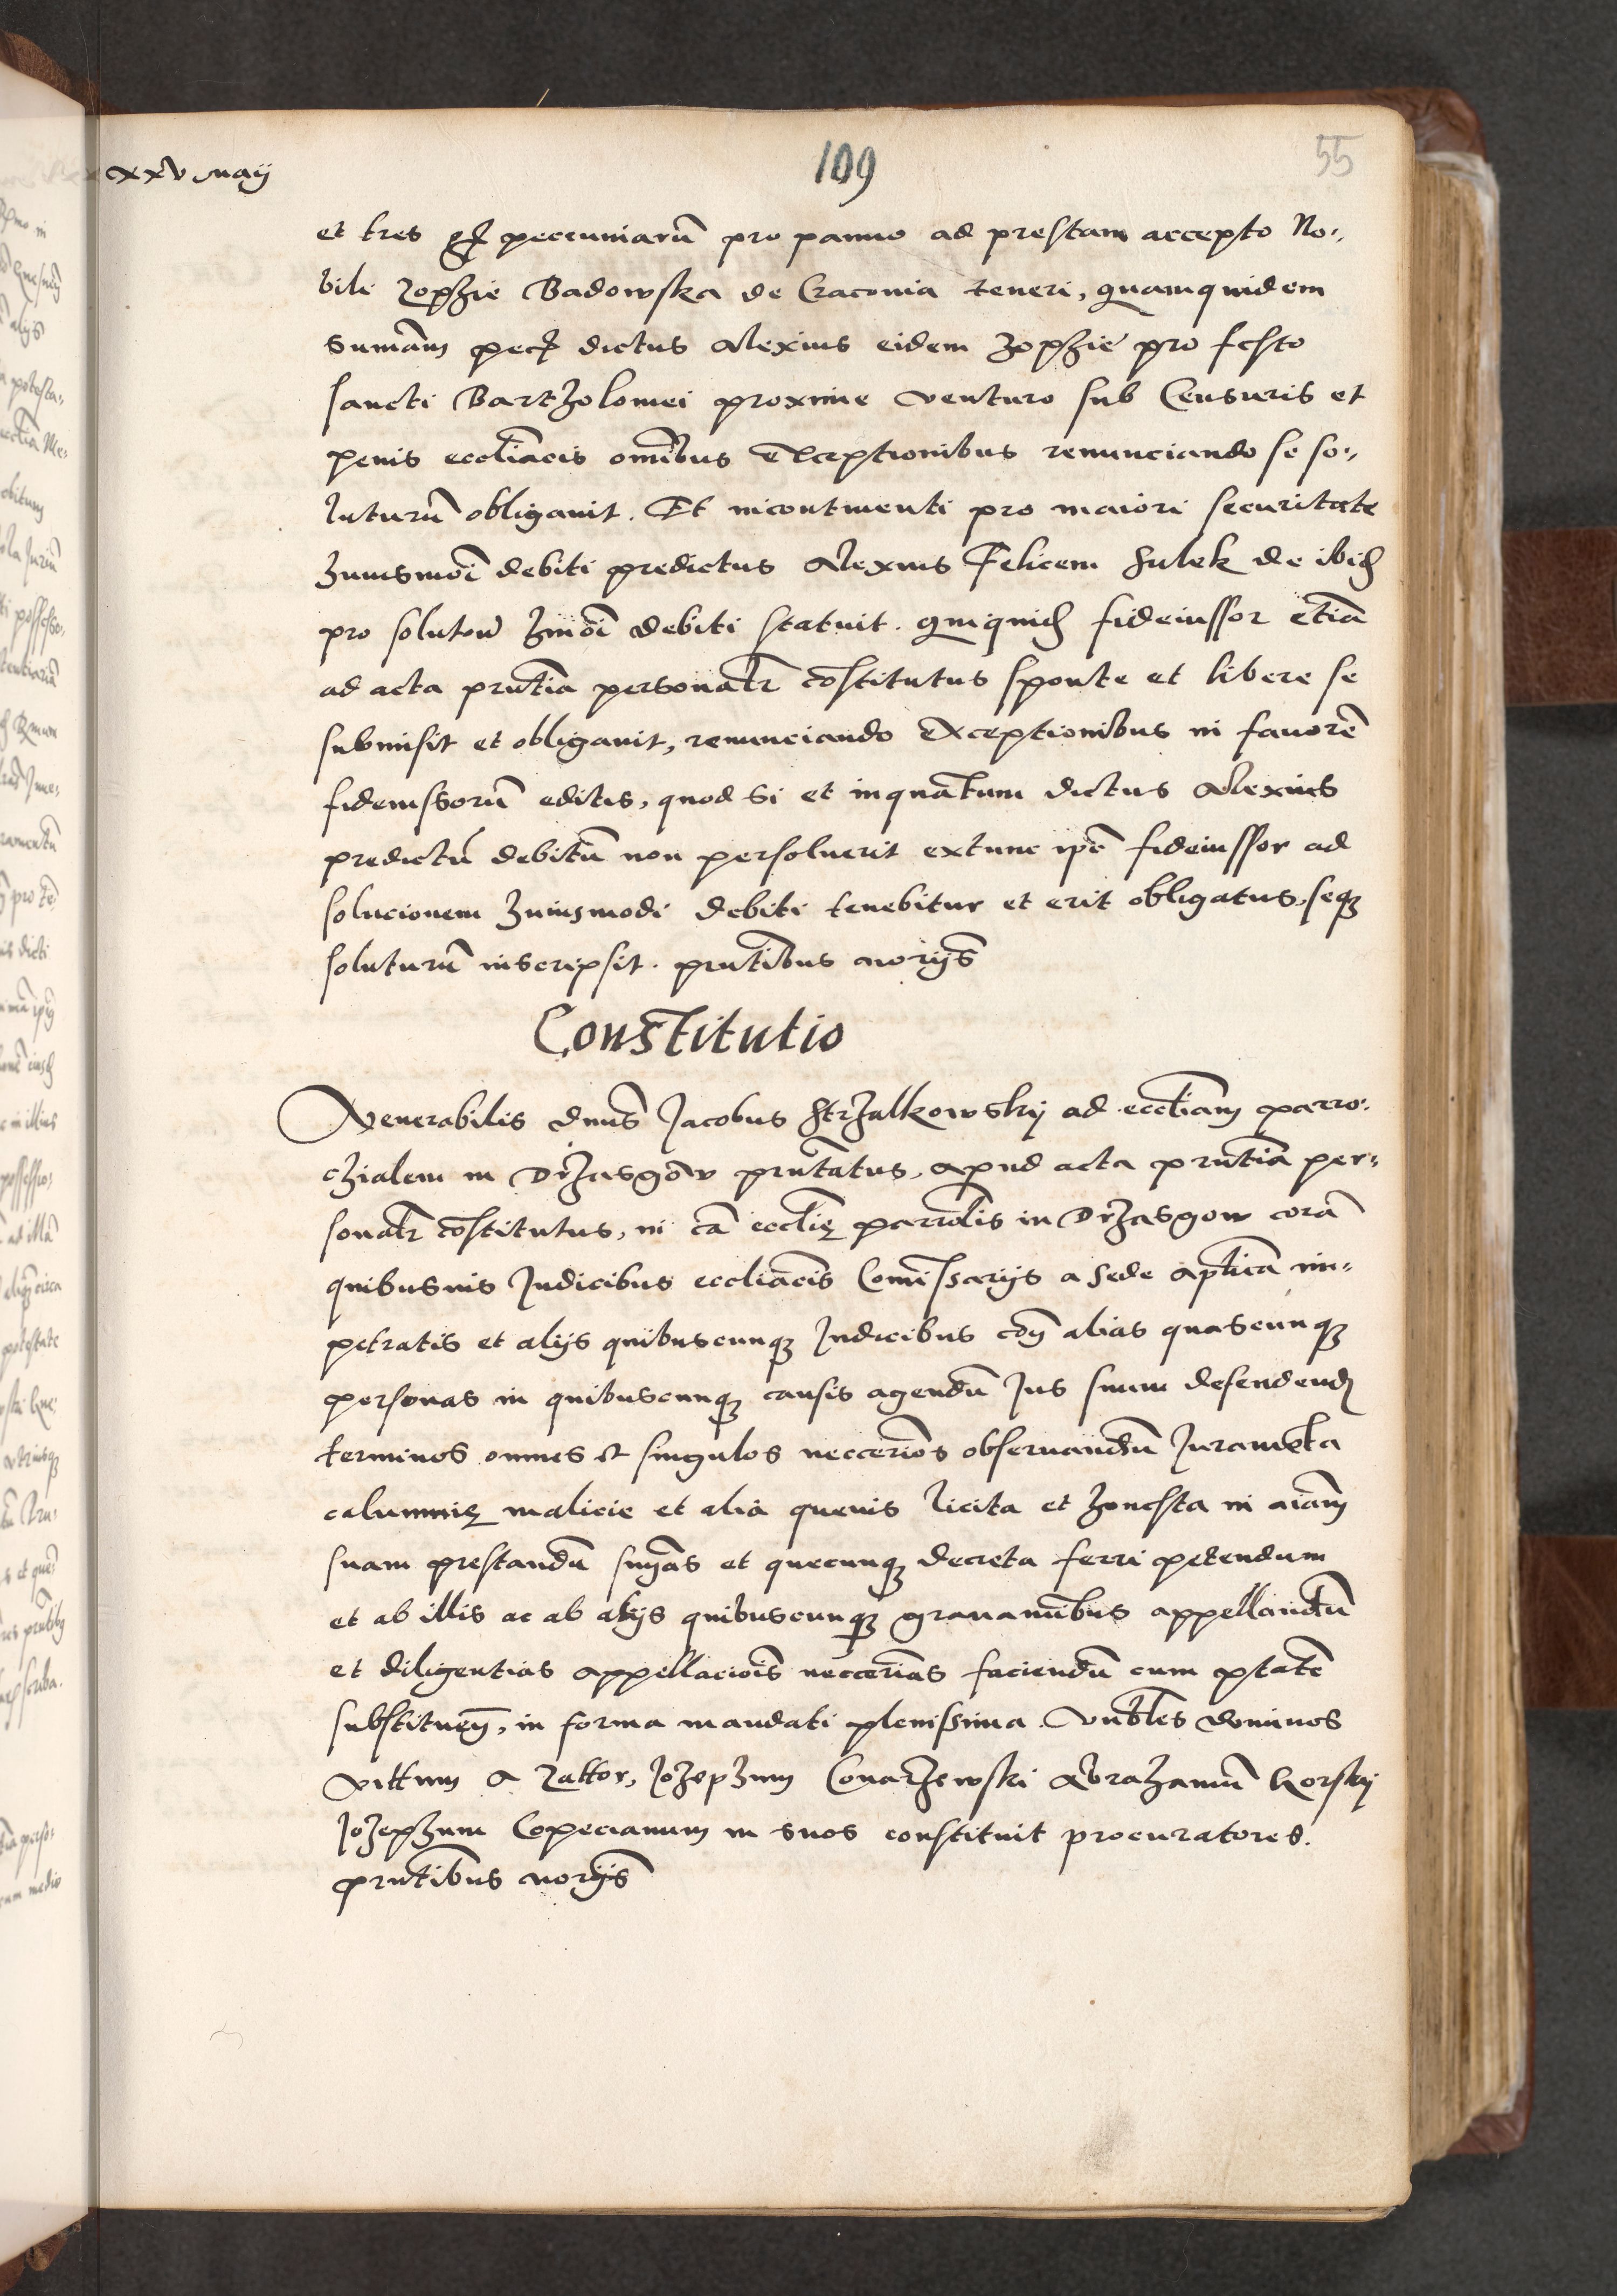 xxv maij
109
55
et tres gr pecuniarū pro panno ad prestam accepto No-
bili Zophie Badowska de Cracovia teneri, quamquidem
sumām pecū dictus Alexius eidem Zophie pro festo
sancti Bartholomei proxime venturo sub Censuris et
penis eccliacis omībus exceptionibus renunciando se so-
luturū obligavit. Et incontinenti pro maiori securitate
huiusmōi debiti predictus Alexius Felicem Sulek de ibid
pro solutoē hmōi debiti statuit. quiquid fideiussor etiā
ad acta prntia personalr cōstitutus sponte et libere se
submisit et obligavit, renunciando exceptionibus in favorē
fideiussorū editis, quod si et inquātum dictus Alexius
predictū debitū non persolverit extunc ipē fideiussor ad
solucionem huiusmodi debiti tenebitur et erit obligatus, seqz
soluturū inscripsit. prntibus norijs
Constitutio
Venerabilis dnus Jacobus Strzalkowskij ad eccliam parro-
chialem in Drzasgow prntatus, apud acta prntia per-
sonalr cōstitutus, in cā ecclię parrolis in Drzasgow corā
quibusvis Judicibus eccliacis Comissarijs a sede aplica im-
petratis et alijs quibuscunqz Judicibus cōn alias quascunqz
personas in quibuscunqz causis agendū Jus suum defendend
terminos omnes et singulos neccerios observandū Juramēta
calumnię malicie et alia quevis licita et honesta in aiam
suam prestandū snias et quecunqz decreta ferri petendum
et ab illis ac ab alijs quibuscunqz gravaminibus appellandū
et diligentias appellaciois neccerias faciendū cum ptate
substituen, in forma mandati plenissima. Vnbles dominos
Vittum a Zattor, Johephum Conarzewski Abrahamū Gorskij
Johephum Copecianum in suos constituit procuratores.
prntibus norijs